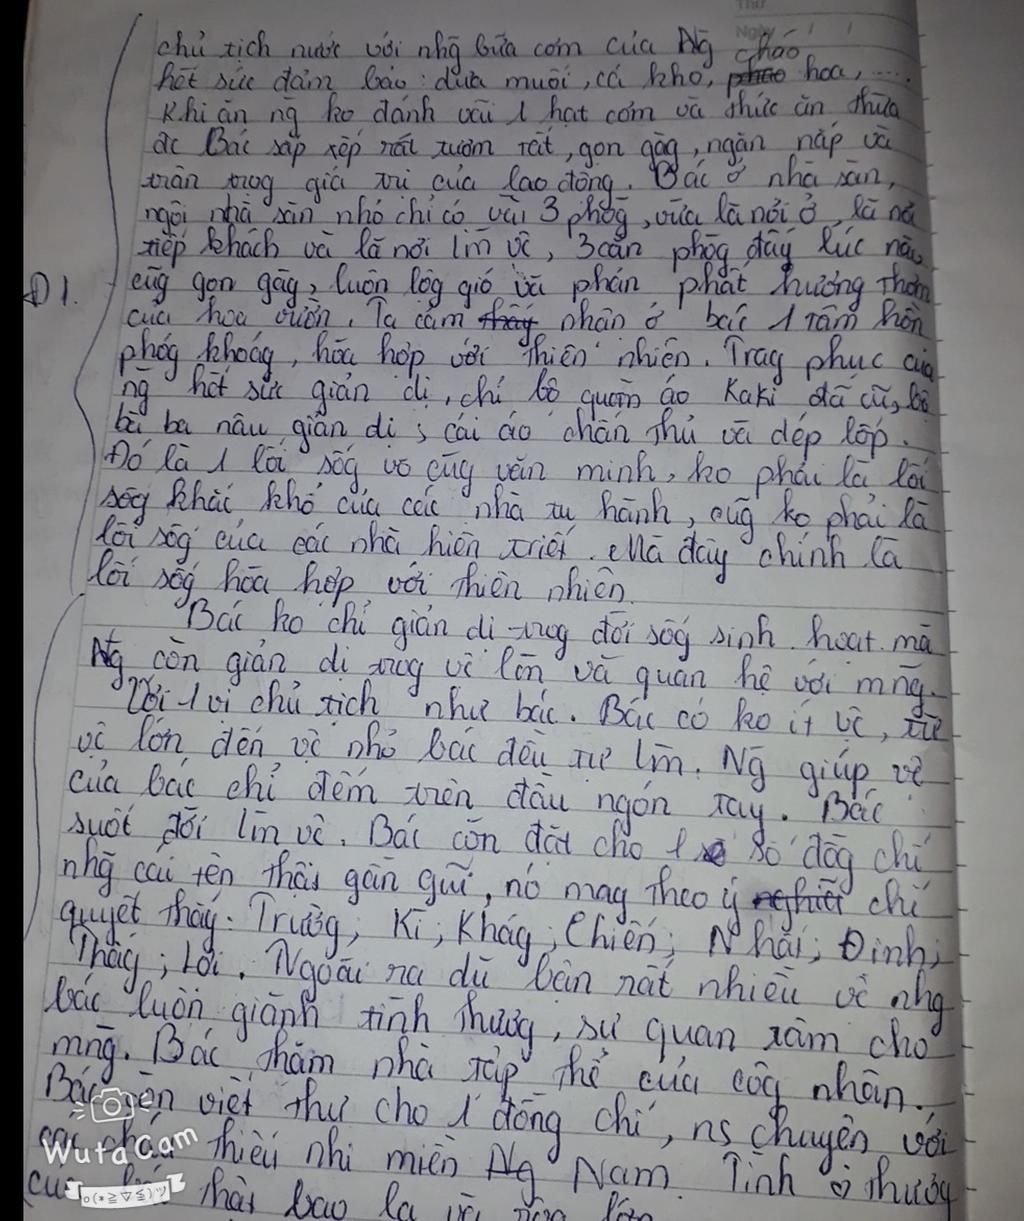 chủ tịch nước với nhg bữa cơm của Ng cháo
hết sức đảm bảo: dưa muối, cá kho, hoa, ....
Khi ăn ng ko đánh vãi 1 hạt cơm và thức ăn thừa
đc Bác sắp xếp rất tươm tất, gọn gàg, ngăn nắp và
trân trọg giá trị của lao động. Bác ở nhà sàn,
ngôi nhà sàn nhỏ chỉ có vài 3 phòg, vừa là nơi ở, là nơi
tiếp khách và là nơi lm vc, 3 căn phòg đấy lúc nào
Đ1. cũg gọn gàg, luôn lộg gió và phản phất hương thơm
của hoa vườn. Ta cảm thấy nhận ở bác 1 tâm hồn
phóg khoág, hòa hợp với thiên nhiên. Trag phục của
ng hết sức giản dị, chỉ bộ quần áo Kaki đã cũ, bộ
bà ba nâu giản dị, cái áo chấn thủ và dép lốp.
Đó là 1 lối sốg vô cùg văn minh, ko phải là lối
sốg khắc khổ của các nhà tu hành, cũg ko phải là
lối sốg của các nhà hiền triết. Mà đây chính là
lối sốg hòa hợp với thiên nhiên.
Bác ko chỉ giản dị trog đời sốg sinh hoạt mà
Ng còn giản dị trog vc lớn và quan hệ với mng.
Với 1 vị chủ tịch như bác. Bác có ko ít vc, từ
vc lớn đến vc nhỏ bác đều tự lm. Ng giúp vc
của bác chỉ đếm trên đầu ngón tay. Bác
suốt đời lm vc. Bác còn đặt cho 1 số đồg chí
nhg cái tên thật gần gũi, nó mag theo ý chí
quyết thắg: Trườg; Kì; Khág; Chiến; Nhất; Định;
Thắg; Lợi. Ngoài ra dù bận rất nhiều vc nhg
bác luôn giành tình thươg, sự quan tâm cho
mng. Bác thăm nhà tập thể của côg nhân.
Bác viết thư cho 1 đồng chí, ns chuyện với
các cháu thiếu nhi miền Ng Nam. Tình thươg
của thật bao la và lớn
WutaCam